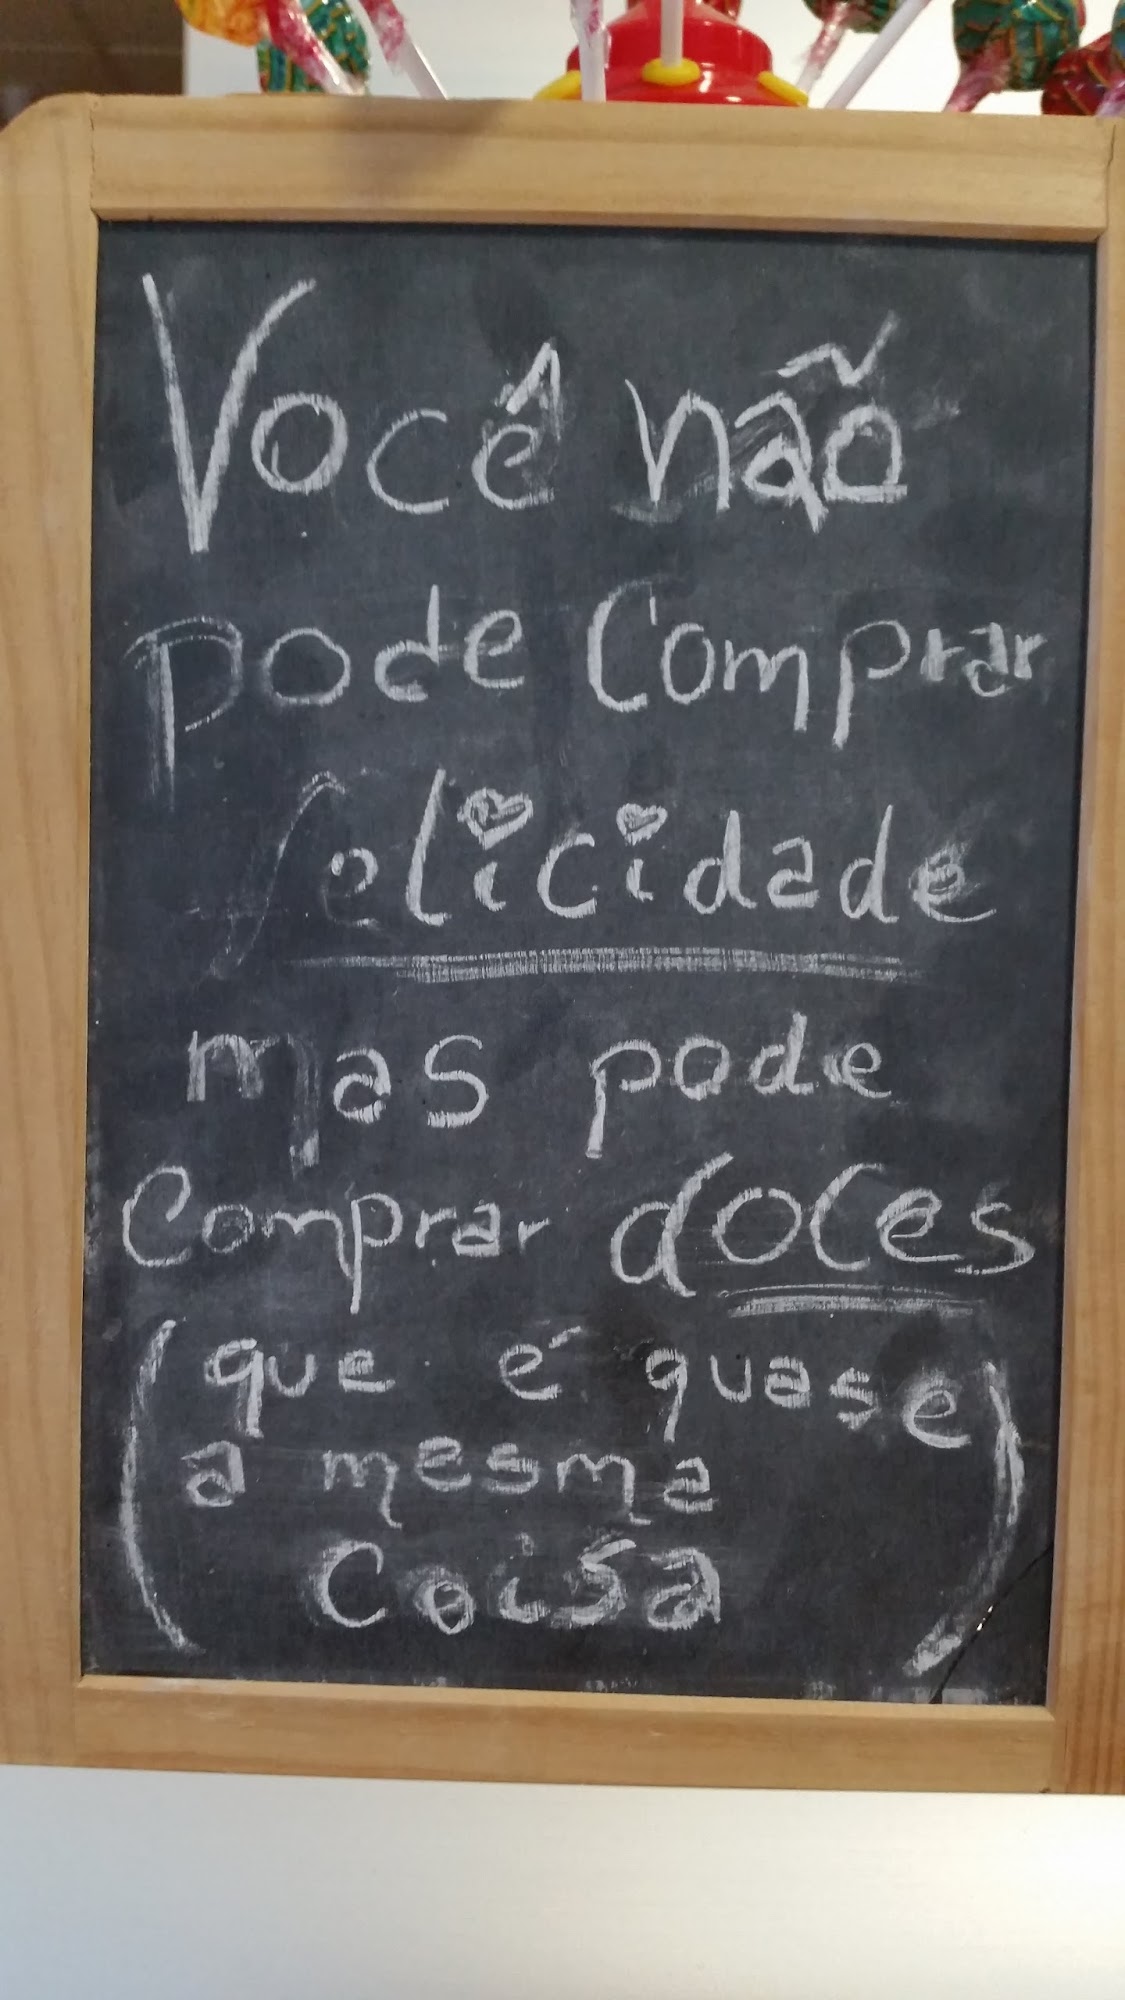 Você não
pode Comprar
felicidade
mas pode
Comprar doces
(que é quase)
a mesma
Coisa